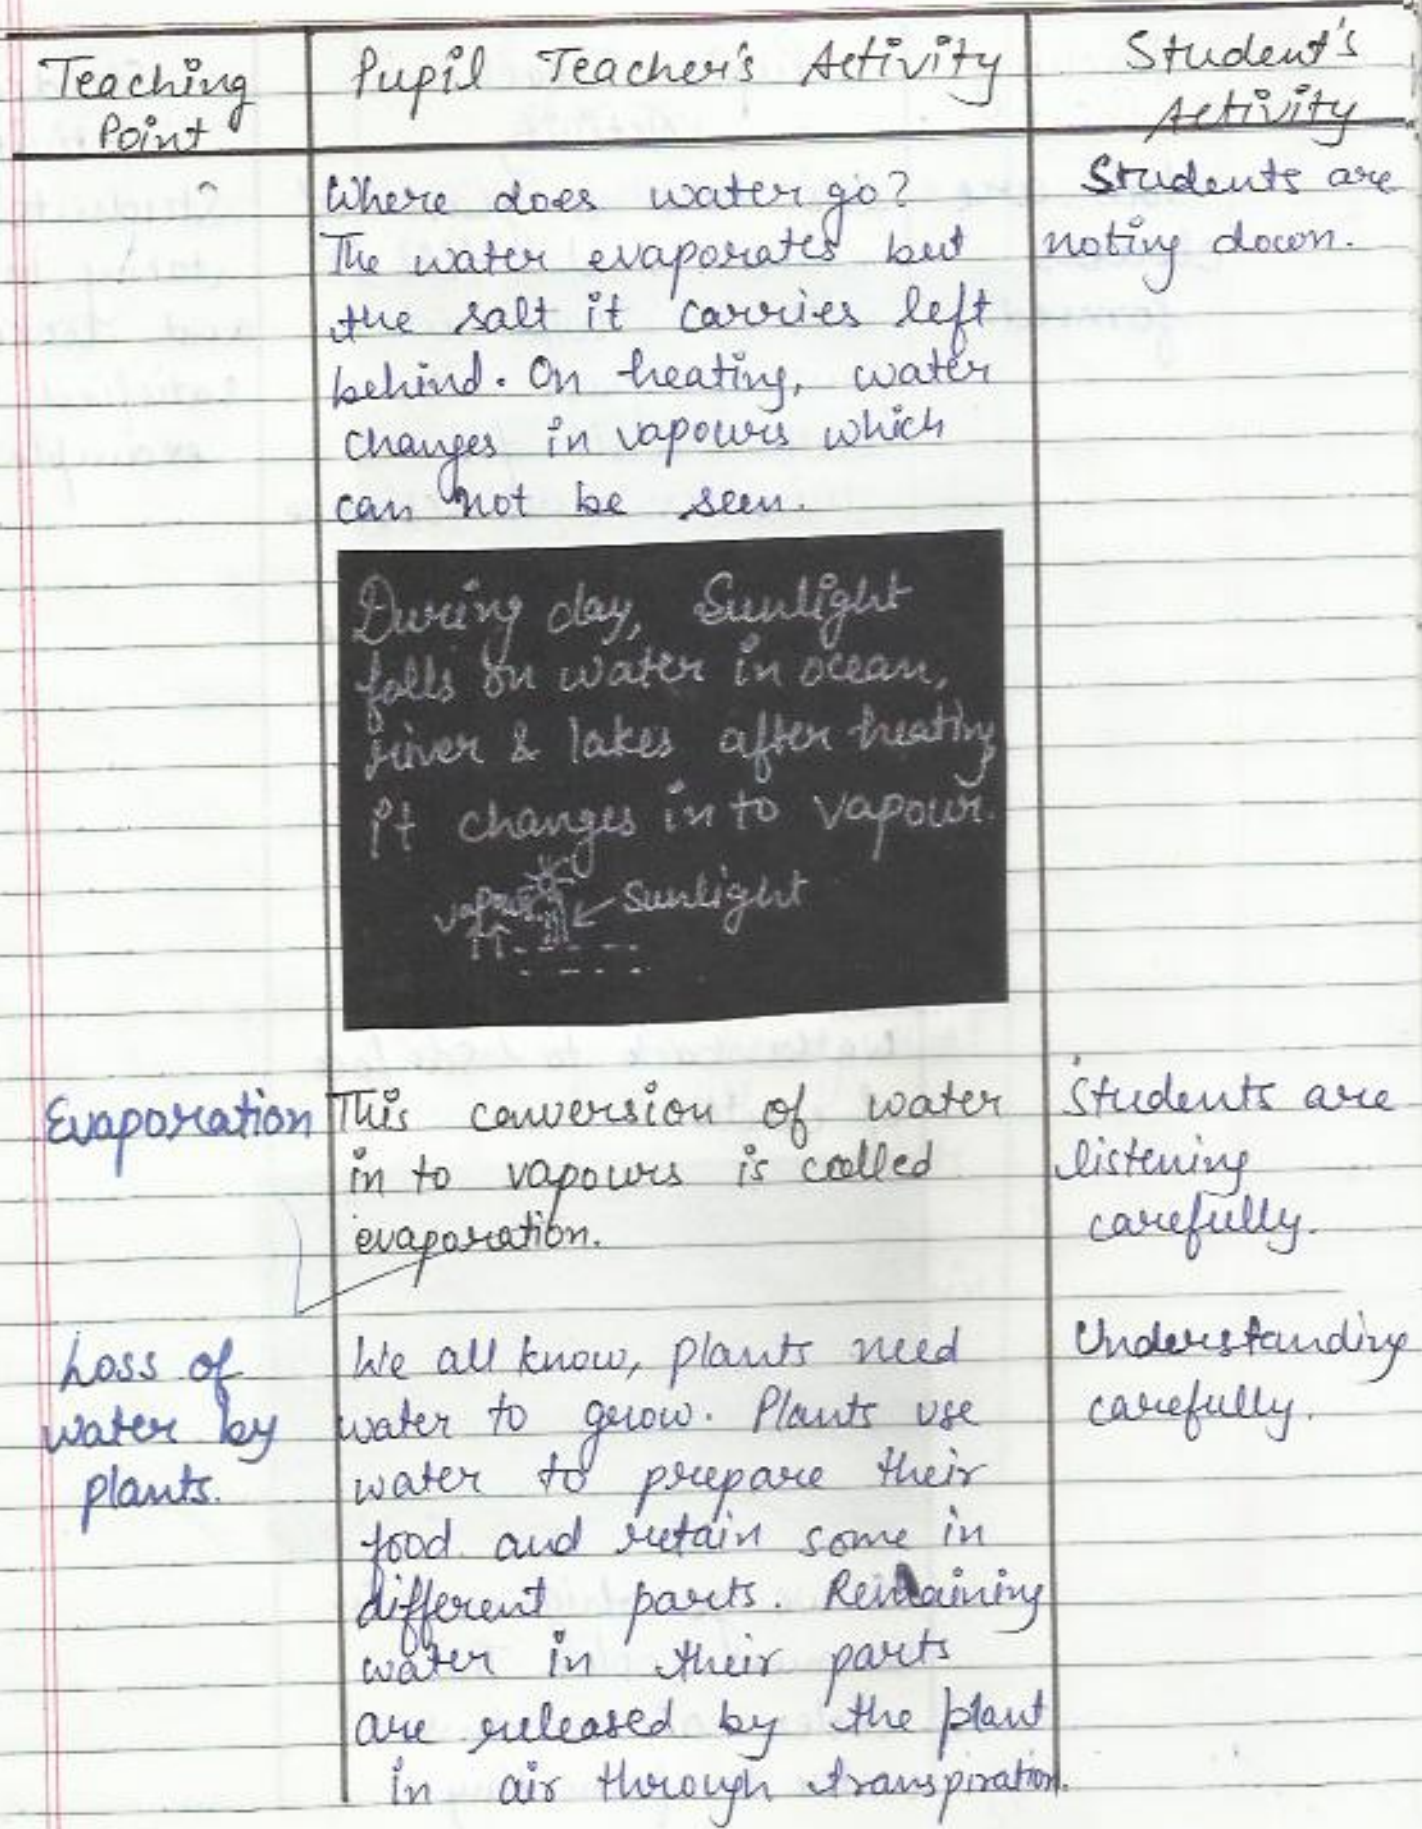 Teaching Point
Pupil Teacher's Activity
Student's Activity
Where does water go?
The water evaporates but
the salt it carries left
behind. On heating, water
changes in vapours which
can not be seen.
Students are
noting down.
During day, Sunlight
falls on water in ocean,
river & lakes after heating
it changes in to vapour.
vapour
Sunlight
Evaporation
This conversion of water
in to vapours is called
evaporation.
Students are
listening
carefully.
Loss of
water by
plants.
We all know, plants need
water to grow. Plants use
water to prepare their
food and retain some in
different parts. Remaining
water in their parts
are released by the plant
in air through transpiration.
Understanding
carefully.